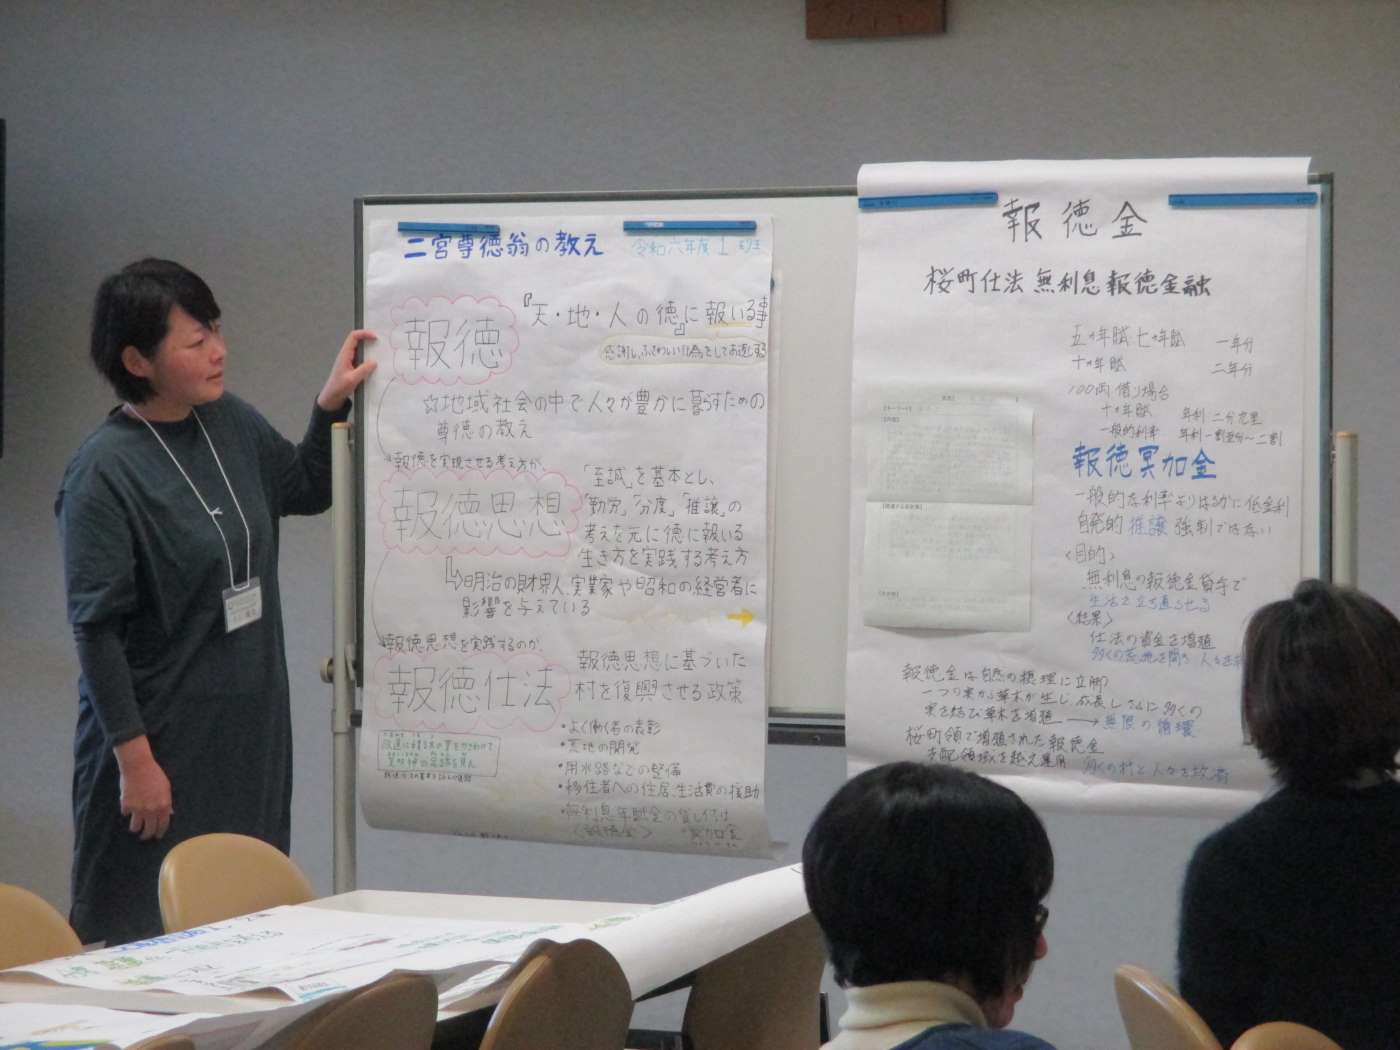 二宮尊徳翁の教え
令和六年度1班
報徳
『天・地・人の徳』に報いる事
☆地域社会の中で人々が豊かに暮らすための
尊徳の教え
報徳を実現させる考え方が、
報徳思想
「至誠」を基本とし、
「勤労」「分度」「推譲」の
考えを元に徳に報いる
生き方を実践する考え方
明治の財界人、実業家や昭和の経営者に
影響を与えている
報徳思想を実践するのが、
報徳仕法
報徳思想に基づいた
村を復興させる政策
・よく働く者の表彰
・荒地の開発
・用水路などの整備
・移住者への住居、生活費の援助
・無利息年賦金の貸し付け
〈報徳金〉
報徳金
桜町仕法 無利息報徳金融
五ヶ年賦 七ヶ年賦 一年分
十ヶ年賦 二年分
100両借り場合
十ヶ年賦
一般的利率
報徳冥加金
一般的な利率よりはるかに低金利
自発的 推譲 強制ではない
〈目的〉
無利息の報徳金貸与で
生活を立ち直らせる
〈結果〉
仕法の資金を増殖
報徳金は自然の摂理に立脚
一つの実から草木が生じ、成長しさらに多くの
実を結び草木を増殖 → 無限の循環
桜町領で増殖された報徳金
支配領域を越え運用 多くの村と人々を救済